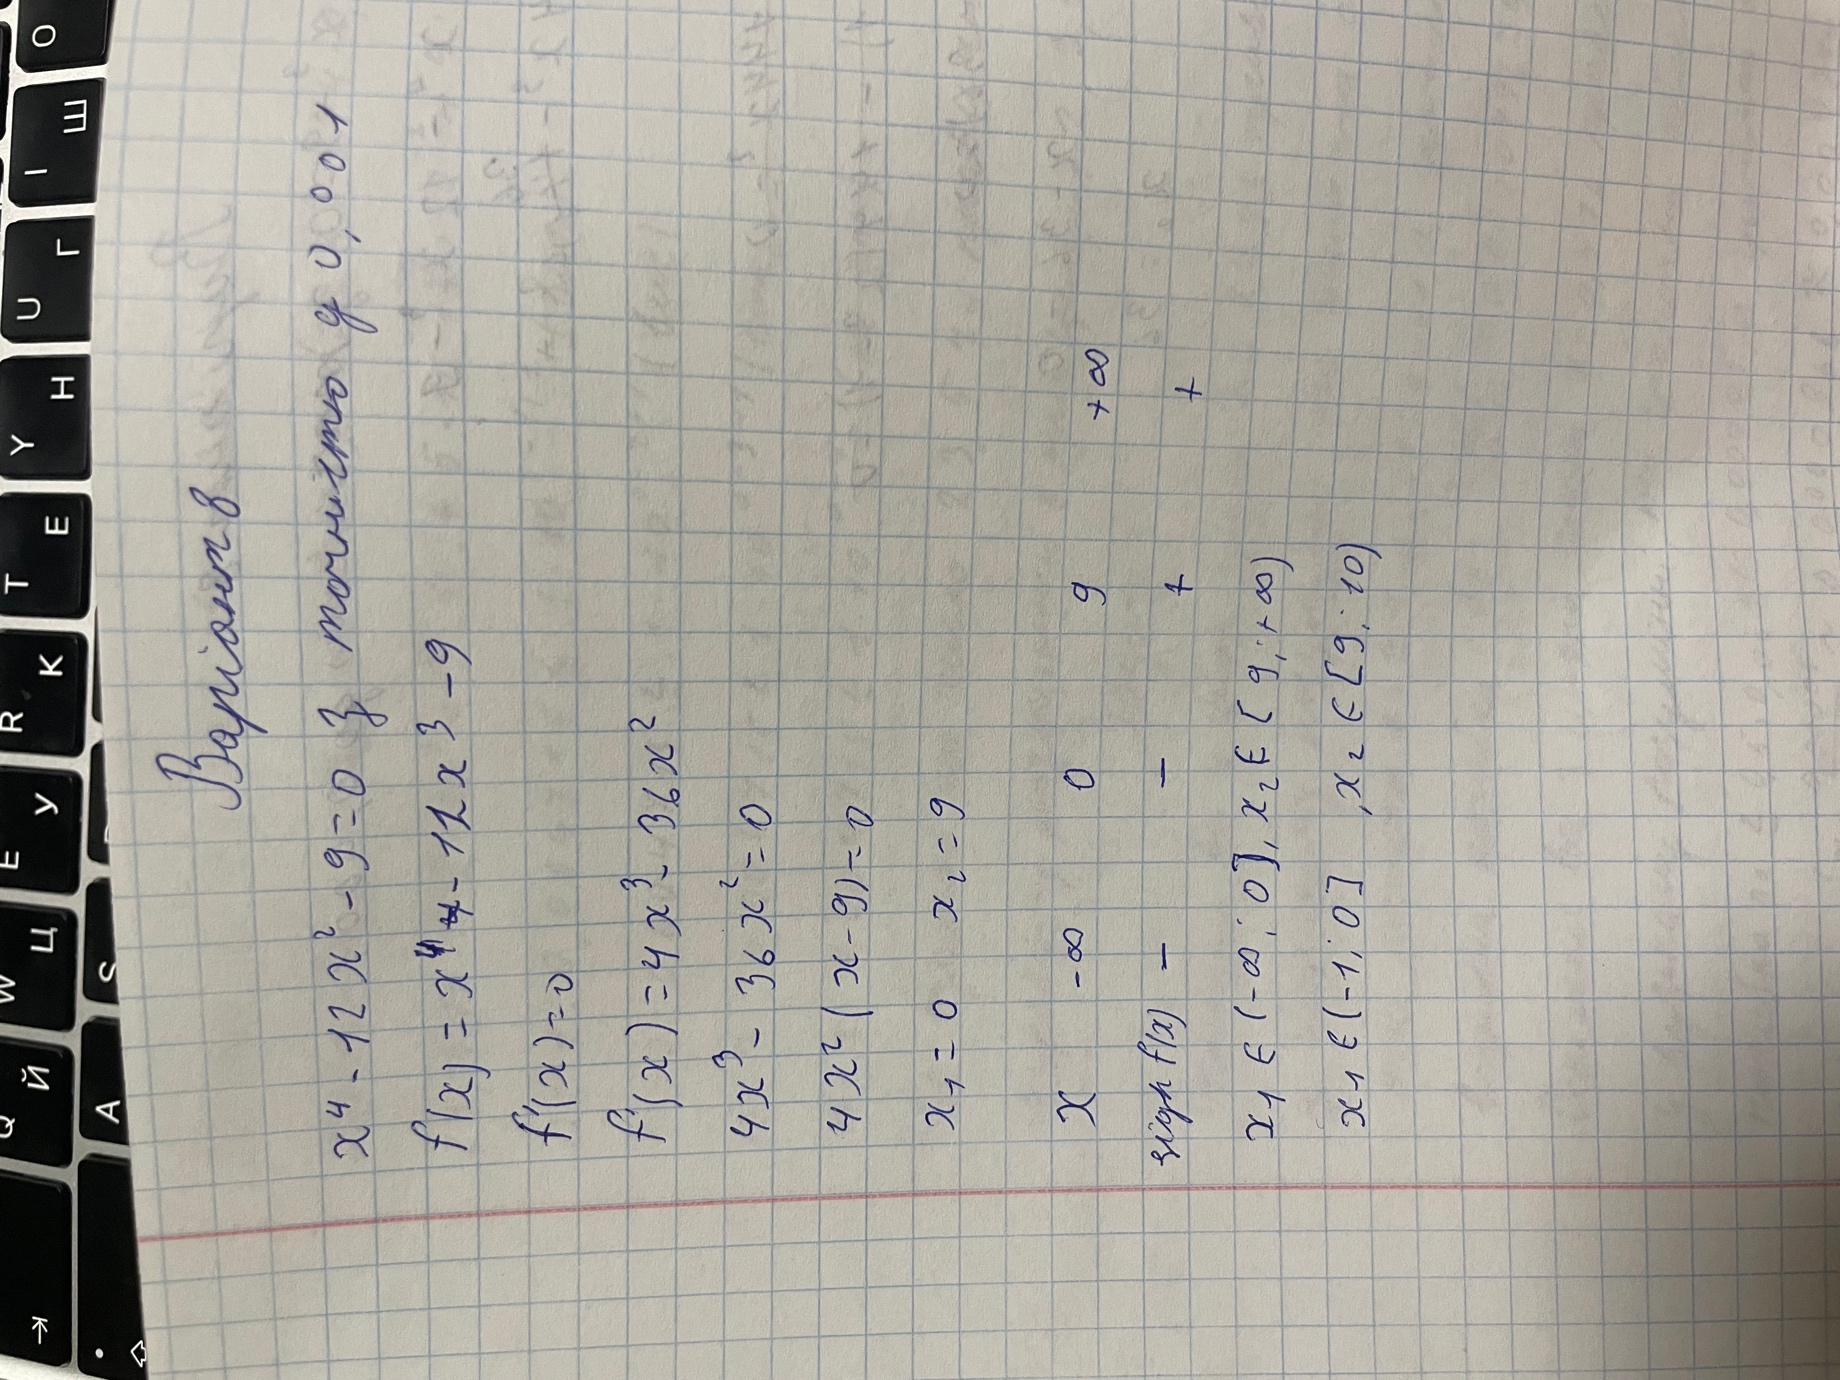 Варіант 8
x⁴ - 12x² - 9 = 0 з точністю до 0,001
f(x) = x⁴ - 12x³ - 9
f'(x) = 0
f'(x) = 4x³ - 36x²
4x³ - 36x² = 0
4x²(x - 9) = 0
x₁ = 0 x₂ = 9
x -∞ 0 9 +∞
sign f(x) - - + +
x₁ ∈ (-∞; 0], x₂ ∈ [9; +∞)
x₁ ∈ (-1; 0] , x₂ ∈ [9; 10)
Q Й
W Ц
E У
R К
T Е
Y Н
U Г
I Ш
O
A
S